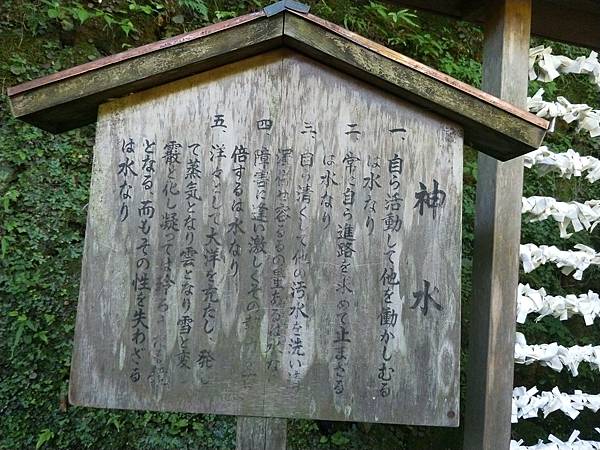 神水
一、自ら活動して他を動かしむる
は水なり
二、常に自ら進路を求めて止まざる
は水なり
三、自ら清くして他の汚水を洗い清
濁併せ容るるの量あるは水な
四、障害に逢い激しくその
倍するは水なり
五、洋々として大洋を充たし、発し
て蒸気となり雲となり雪と変じ
霰と化し凝っては
となる 而もその性を失わざる
は水なり